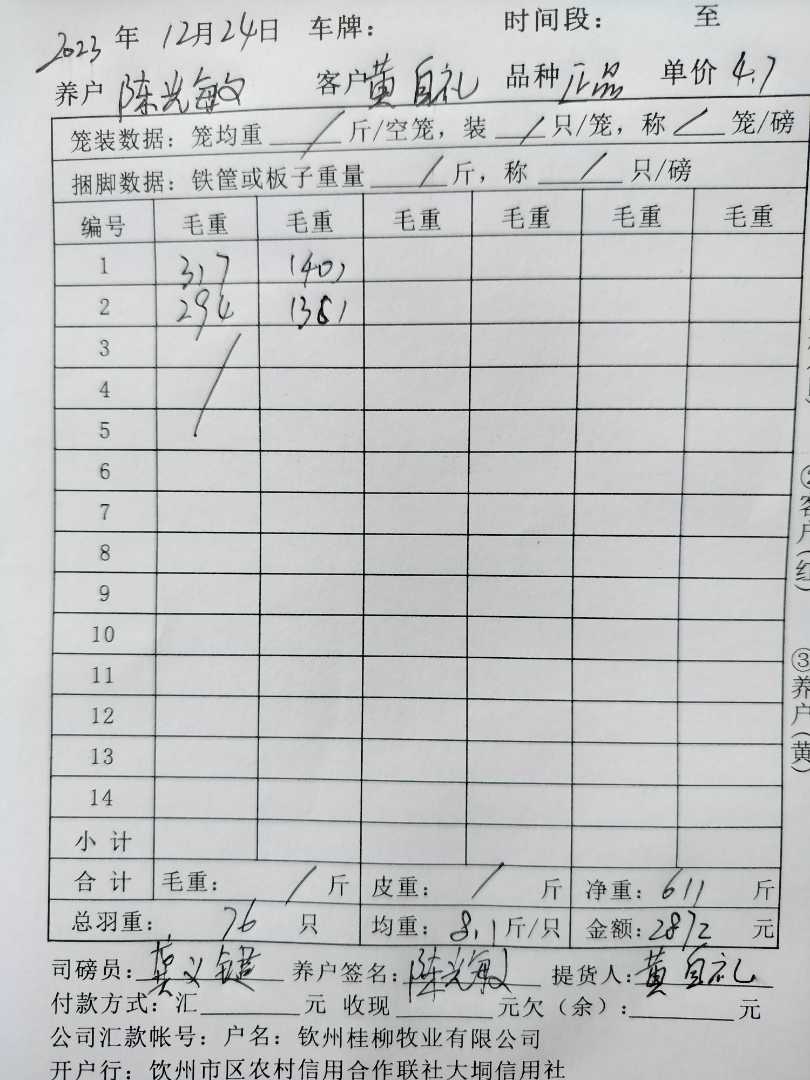 2023 年 12月24日 车牌: 时间段: 至
养户 陈光敏 客户 黄自礼 品种 正品 单价 4.7
笼装数据: 笼均重 / 斤/空笼, 装 / 只/笼, 称 / 笼/磅
捆脚数据: 铁筐或板子重量 / 斤, 称 / 只/磅
编号 毛重 毛重 毛重 毛重 毛重 毛重
1 317 (40)
2 294 (36)
3
4
5
6
7
8
9
10
11
12
13
14
小 计
合 计 毛重: / 斤 皮重: / 斤 净重: 611 斤
总羽重: 76 只 均重: 8.1 斤/只 金额: 2872 元
司磅员: 养户签名: 陈光敏 提货人: 黄自礼
付款方式: 汇 元 收现 元欠(余): 元
公司汇款帐号: 户名: 钦州桂柳牧业有限公司
开户行: 钦州市区农村信用合作联社大垌信用社
②客户(红)
③养户(黄)